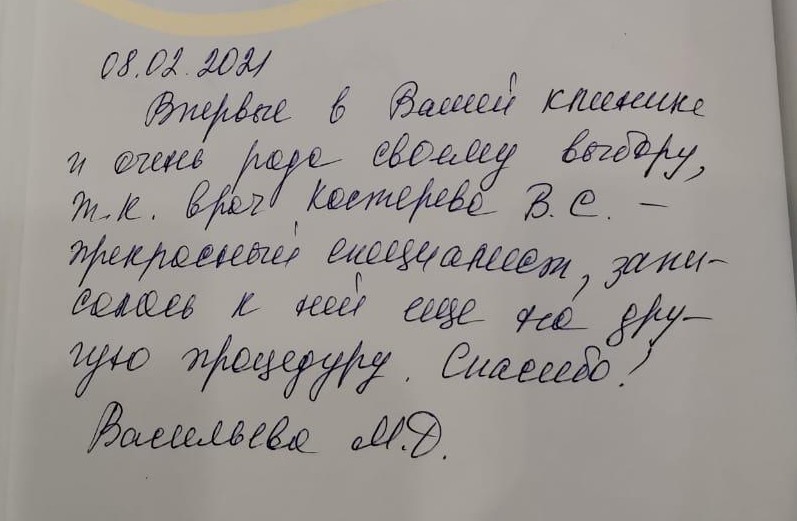 08.02.2021
Впервые в Вашей клинике
и очень рада своему выбору,
т.к. врач Костерева В.С. –
прекрасный специалист, запи-
салась к ней еще на дру-
гую процедуру. Спасибо!
Васильева М.Д.